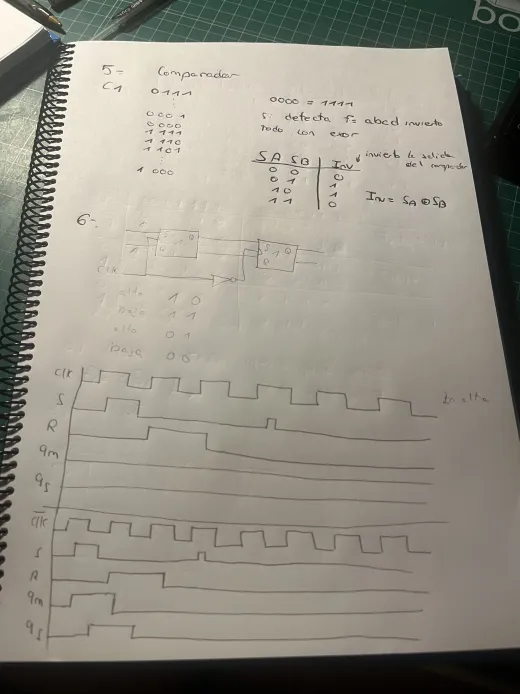 bo
5= Comparador
C1 0111
:
0001
0000
1111
1110
1101
:
1000
0000 = 1111
si defecta f= abcd invierto
todo con exor
SA SB Inv
0 0 0
0 1 1
1 0 1
1 1 0
invierte la salida
del comparador
Inv = SA ⊕ SB
6=
S 1 Q
S 1 Q
R
clk
alta 1 0
baja 1 1
alta 0 1
baja 0 0
clk
S
R
qm
qs
clk
S
R
qm
qs